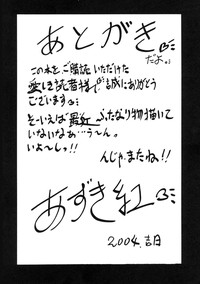 あとがき
だよ。
この本をご購読いただけた
愛しき読者様、誠にありがとう
ございます
そーいえば最近ふたなり物描いて
いないなぁ…う〜ん。
いよ〜しっ!!
んじゃまたね!!
あずき紅
2004.吉日